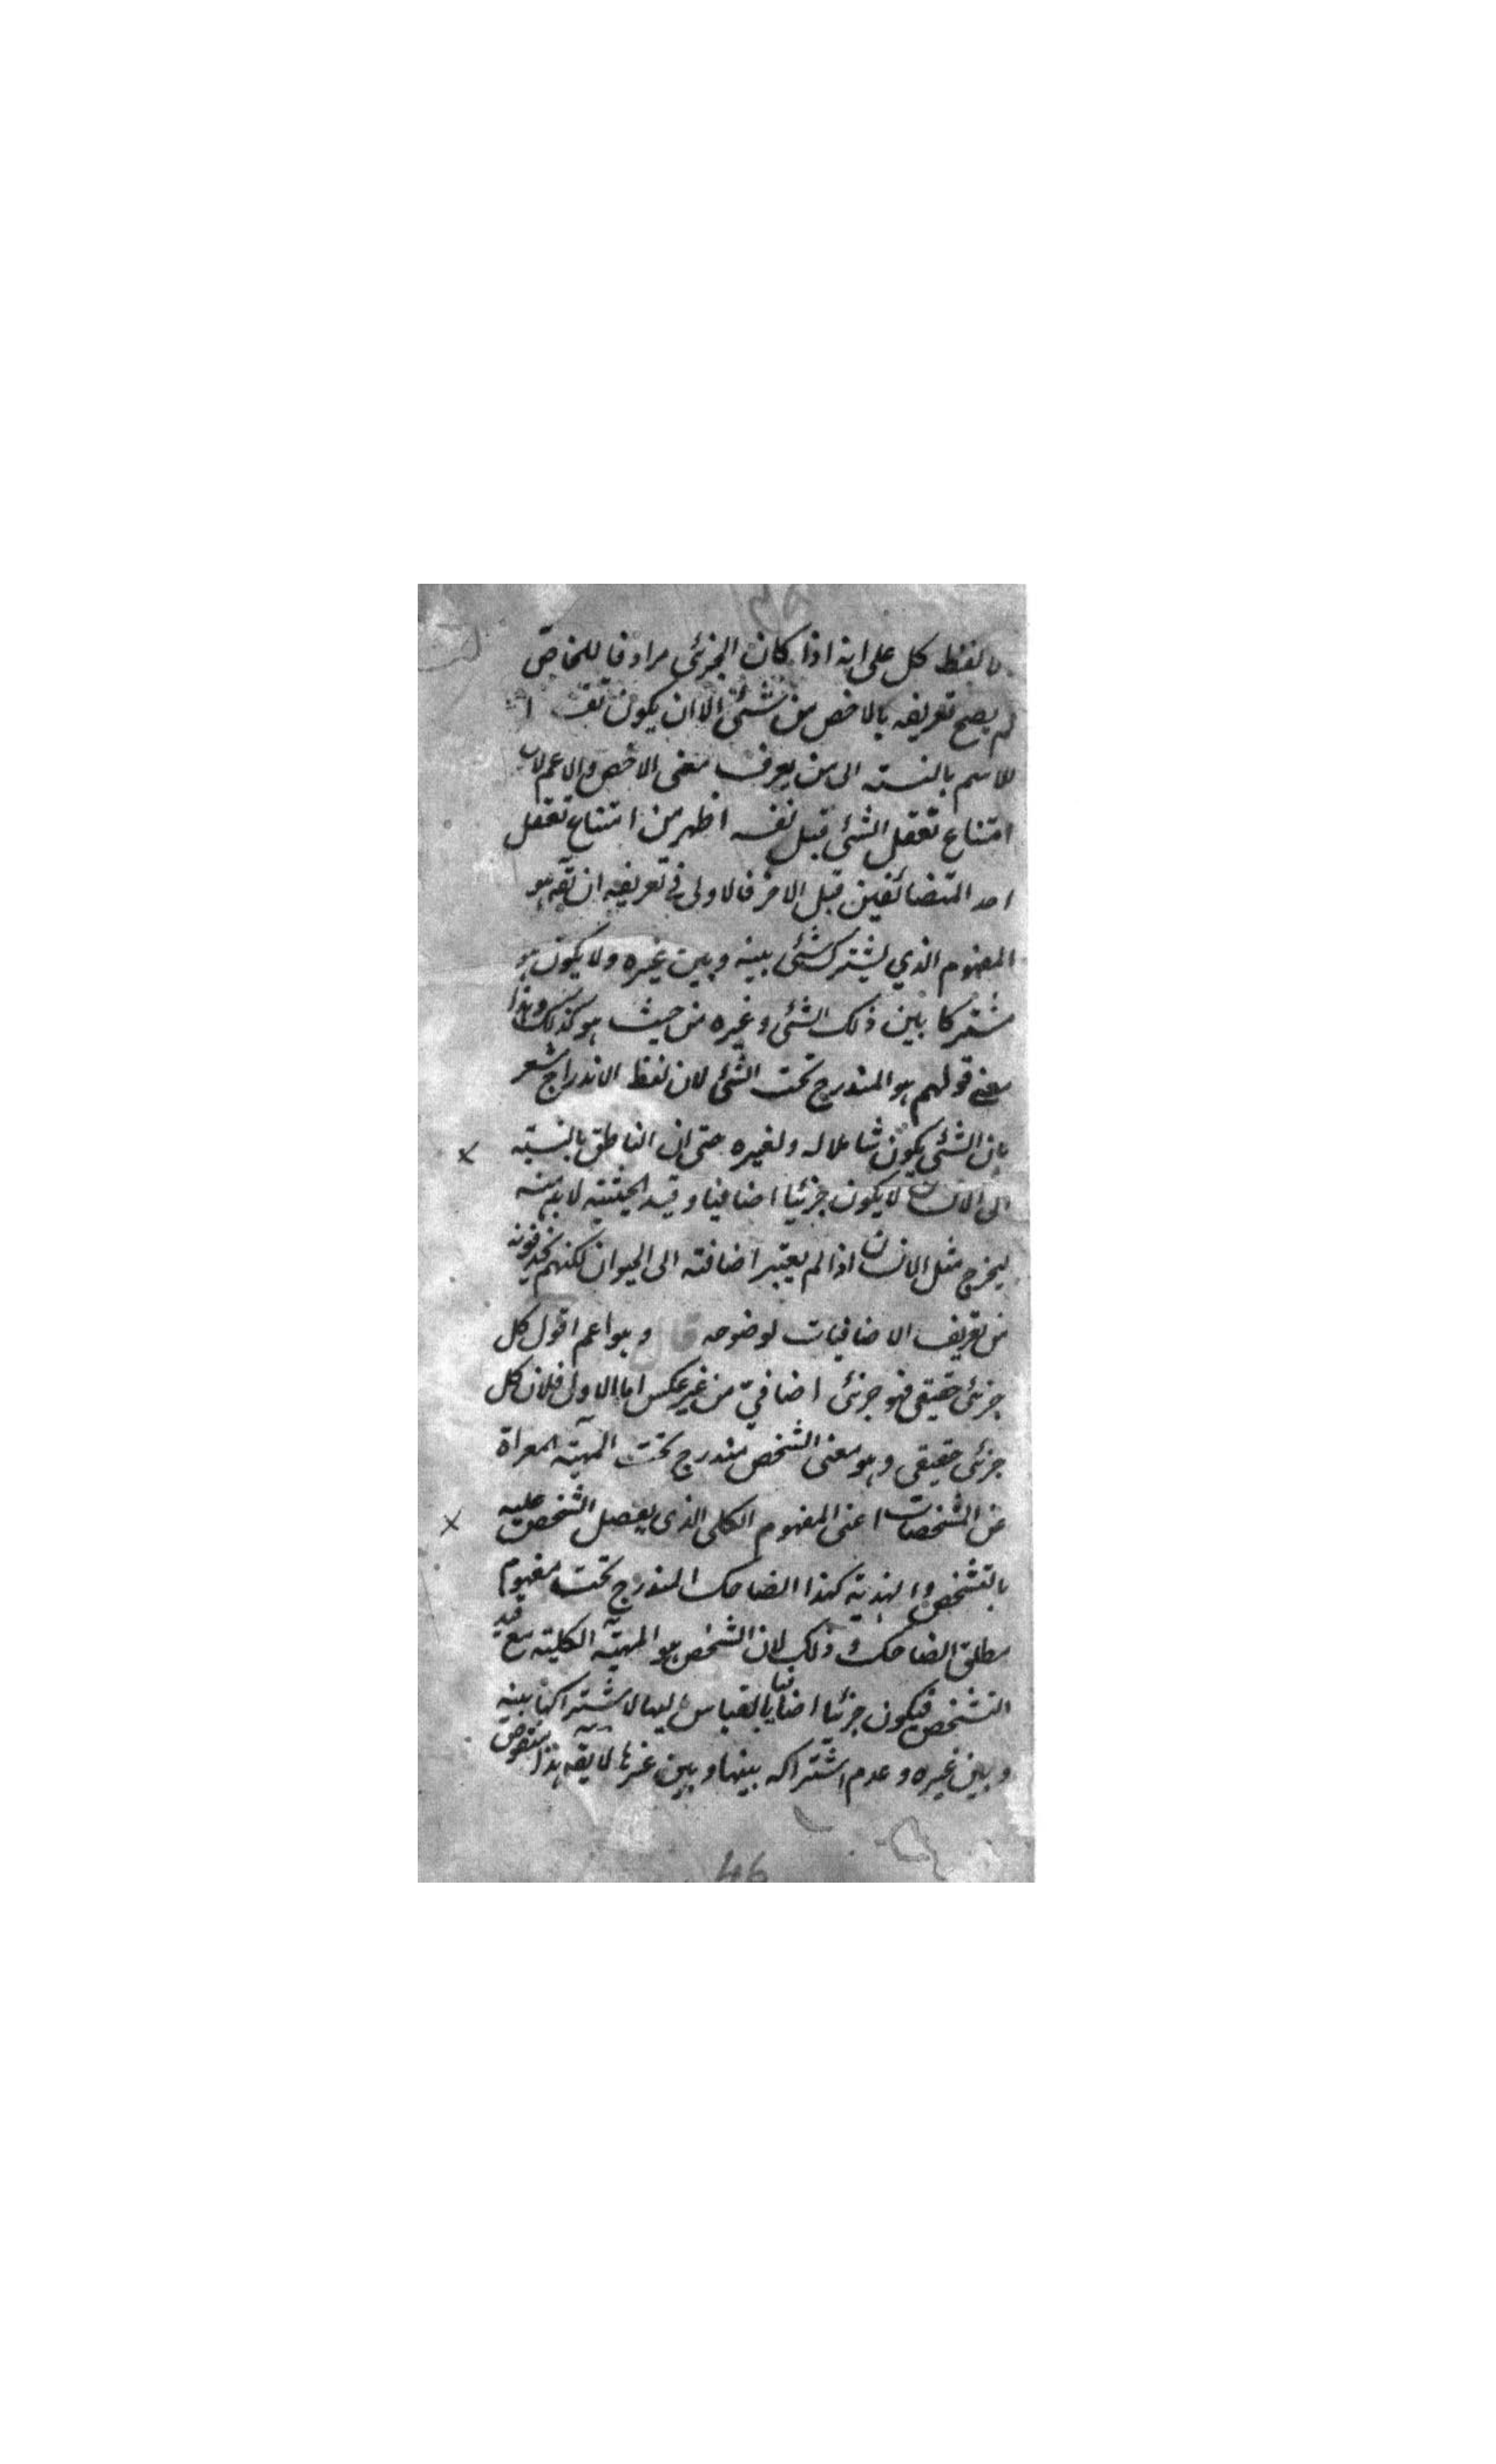 لفظ كل على انه اذا كان الجزئى مرادفا للخاص
لم يصح تعريفه بالاخص من شئ الا ان يكون
للاسم بالنسبه الى من يعرف معنى الاخص والاعم لان
امتناع تعقل الشئ قبل نفسه اظهر من امتناع تعقل
احد المتضائفين قبل الاخر فالاولى فى تعريفه ان يقه هو
المفهوم الذي يشترك شئ بينه وبين غيره ولا يكون هو
مشتركا بين ذلك الشئ وغيره من حيث هو كذلك وهذا
معنى قولهم هو المندرج تحت الشئ لان لفظ الاندراج مشعر
بان الشئ يكون شاملا له ولغيره حتى ان الناطق بالنسبته
الى الانسان لا يكون جزئيا اضافيا وقيد الحيثيته لابد منه
ليخرج مثل الانسان اذا لم يعتبر اضافته الى الحيوان لكنهم يحذفونه
من تعريف الاضافيات لوضوحه قال وهو اعم اقول كل
جزئى حقيقى فهو جزئى اضافي من غير عكس اما الاول فلان كل
جزئى حقيقى وهو معنى الشخص مندرج تحت المهيته المعراة
عن المشخصات اعنى المفهوم الكلى الذى يفصل الشخص عليه
بالتشخص والهذية كهذا الضاحك المندرج تحت مفهوم
مطلق الضاحك وذلك لان الشخص هو المهيته الكليته مع قيد
التشخص فيكون جزئيا اضافيا بالقياس اليها لاشتراكها بينه
وبين غيره وعدم اشتراكه بينها وبين غيرها لا يقه هذا منقوض
46